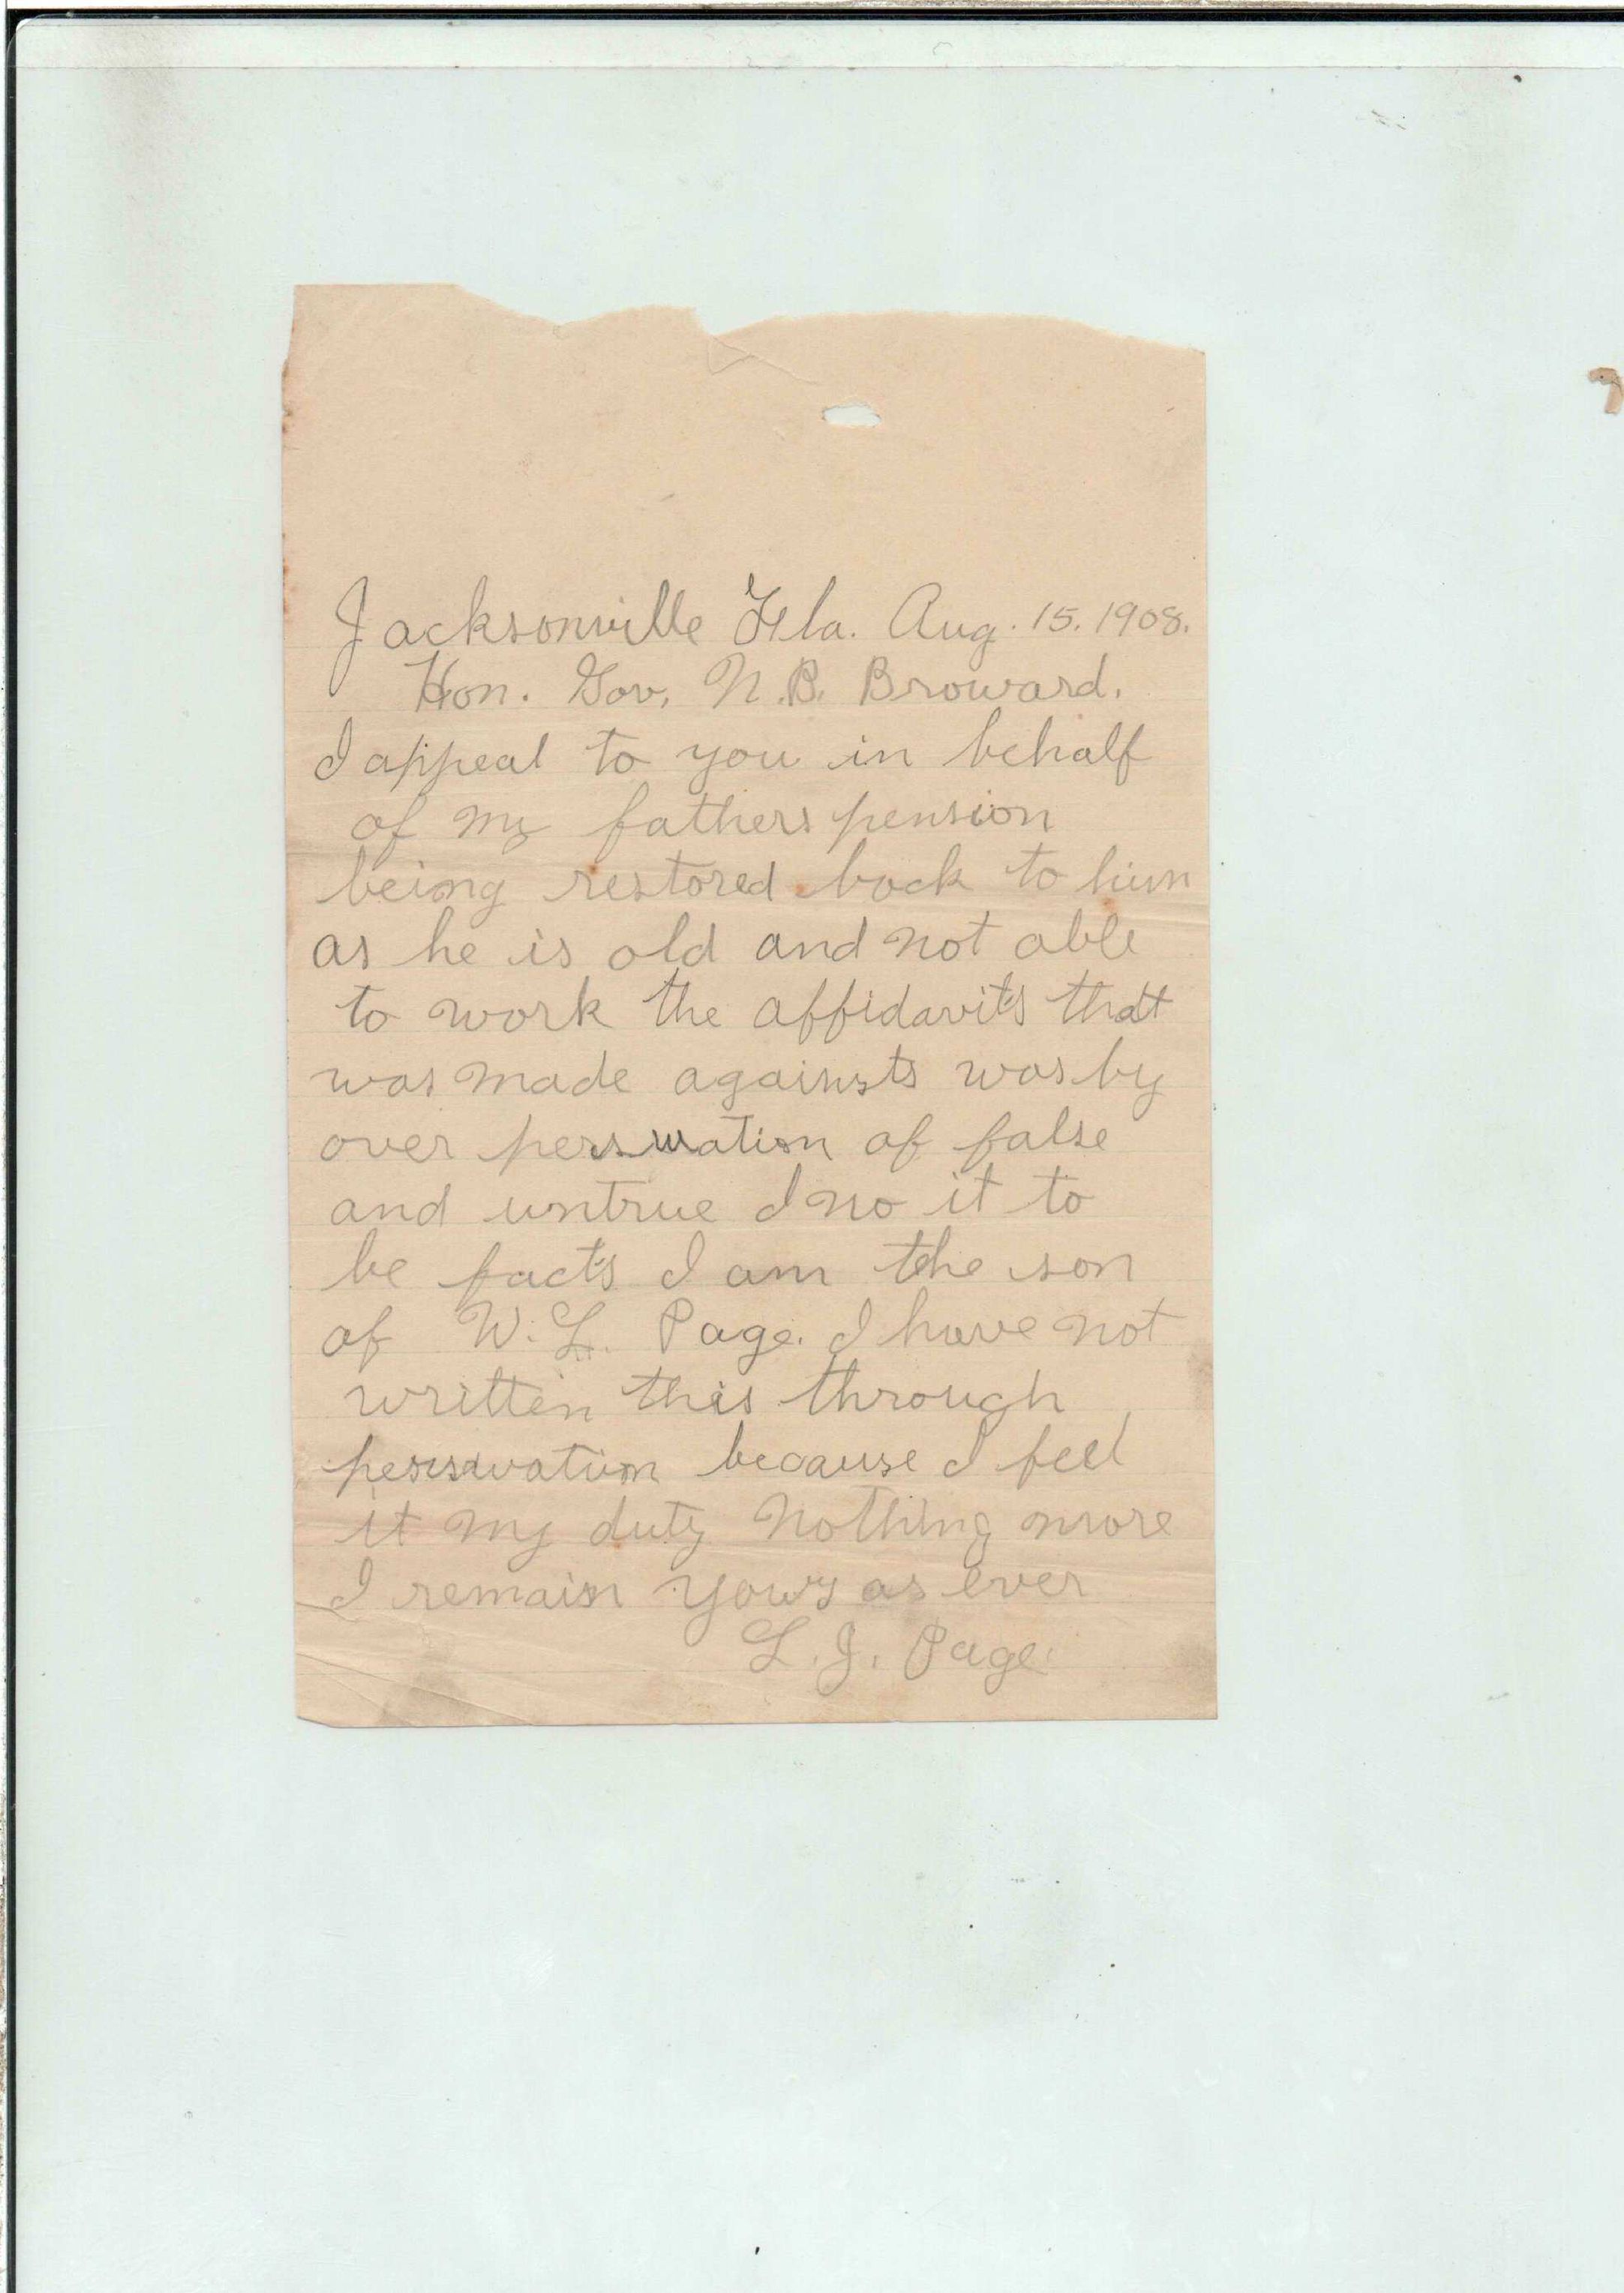 Jacksonville Fla. Aug. 15. 1908.
Hon. Gov. N.B. Broward.
I appeal to you in behalf
of my fathers pension
being restored back to him
as he is old and not able
to work the affidavits that
was made againsts was by
over perswation of false
and untrue I no it to
be facts I am the son
of W. L. Page. I have not
written this through
perswation because I feel
it my duty nothing more
I remain yours as ever
L. J. Page.